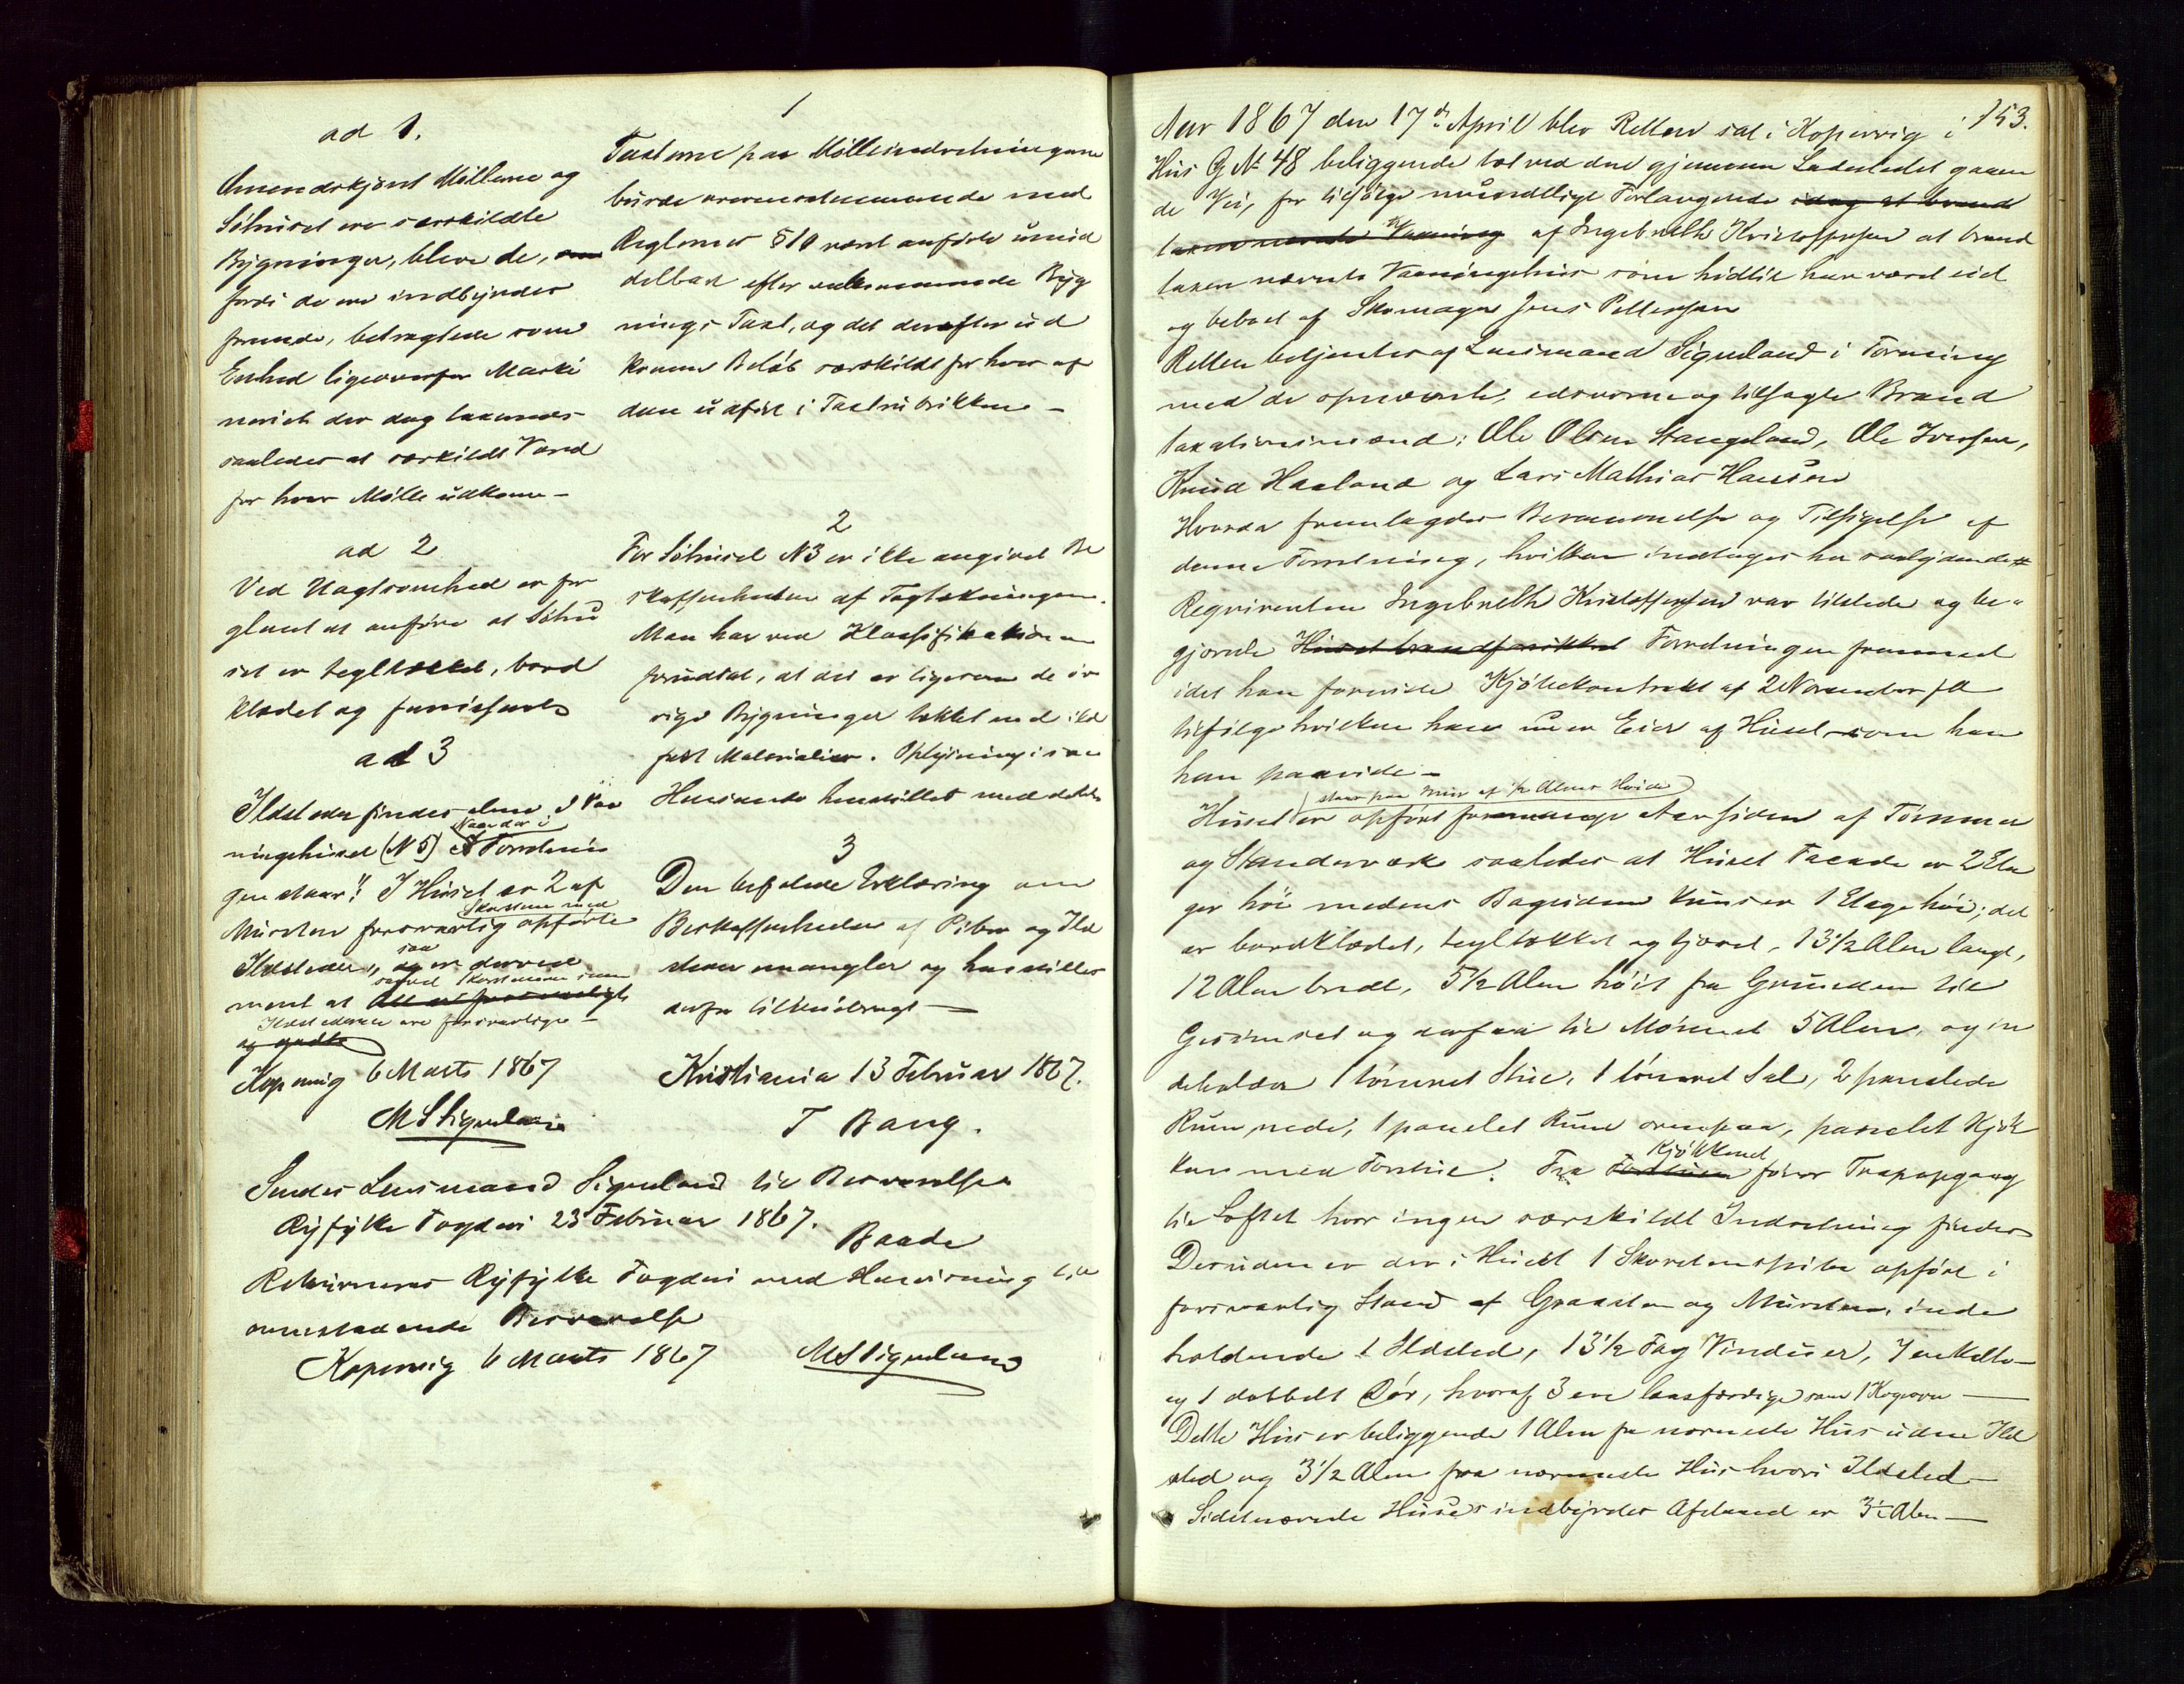 ad 1.
Omendskjønt Møllerne og
Søhuset ere særskildte
Bygninger, bleve de,
fordi de ere indbyrdes
forbundne, betragtede som
Enhed ligeoverfor Maski
neriet der dog taxeredes
saaledes at særskildt Værd
for hver Mølle udkom –
ad 2
Ved Uagtsomhed er for
glemt at anføre at Søhu
set er tegltækket, bord
klædet og
ad 3
Ildsteder findes alene i Vaa
ningshuset (N 5)
Naar der i
Forretnin
gen staar "I Huset er 2 af
Mursten forsvarlig opførte
Skorstene med
Ildsteder", saa er dermed
ment at saavel Skorstenene som
Ildstederne ere forsvarlige –
og godt
Kopervig 6 Marts 1867
M S Sigveland
1
Taxterne paa Mølleindretningerne
burde overensstemmende med
Reglernes § 10 været anførte umid
delbart efter vedkommende Byg
nings Taxt, og det derefter ud
komne Beløb særskildt for hver af
dem udført i Taxtrubrikken –
2
For Søhuset N 3 er ikke angivet Be
skaffenheden af Tagtækningen.
Man har ved Klassifikationen
forudsat, at det er ligesom de øv
rige Bygninger tækket med ild
fast Materialier. Oplysning i saa
Henseende henstilles meddelt
3
Den befalede Erklæring om
Beskaffenheden af Piber og Ild
steder mangler og henstilles
derfor tilveiebragt –
Kristiania 13 Februar 1867.
T Bang.
Sendes Lensmand Sigveland til Besvarelse
Ryfylke Fogderi 23 Februar 1867.
Baade
Returneres Ryfylke Fogderi med Henvisning til
ovenstaaende Besvarelse
Kopervig 6 Marts 1867
M S Sigveland
153.
Aar 1867 den 17de April blev Retten sat i Kopervig i
Hus G. No 48 beliggende tæt ved den gjennem Ladestedet gaaen
de Vei, for tilfølge mundtligt Forlangende idag at brand
taxere nævnte Vaaning af Ingebreth Kristoffersen at brand
taxere nævnte Vaaningshus som hidtil har været eiet
og beboet af Skomager Jens Pettersen
Retten betjentes af Lensmand Sigveland i Forening
med de opnævnte, edsvorne og tilsagte Brand
taxationsmænd: Ole Olsen Stangeland, Ole Iversen,
Knud Haaland og Lars Mathias Hansen
Hvorda fremlagdes Berammelse og Tilsigelse af
denne Forretning, hvilken indtages her saalydende #
Reqvirenten Ingebreth Kristoffersen var tilstede og be-
gjærede Huset brandforsikkret Forretningen fremmet
idet han foreviste Kjøbekontrakt af 2 November f A
tilfølge hvilken han nu er Eier af Huset som han
han paaviste –
staar paa Mur af ½ Alens Høide
Huset er opført for mange Aar siden af Tømmer
og Standerværk saaledes at Husets Facade er 2 Eta
ger høi medens Bagsiden kun er 1 Etage høi; det
er bordklædet, tegltækket og tjæret, 13½ Alen langt,
12 Alen bredt, 5½ Alen høit fra Grunden til
Gesimset og derfra til Mønet 5 Alen, og in
deholder 1 tømret Stue, 1 tømret Sal, 2 panelede
Rum nede, 1 panelet Rum ovenpaa, panelet Kjøk
ken med Forstue. Fra Forstuen Kjøkkenet fører Trapopgang
til Loftet hvor ingen særskildt Indretning findes
Desuden er der i Huset 1 Skorstenspibe opført i
forsvarlig Stand af Graasten og Mursten, inde
holdende 1 Ildsted, 13½ Fag Vinduer, 7 enkelte
og 1 dobbelt Dør, hvoraf 3 ere laasfærdige samt 1 Kogeovn –
Dette Hus er beliggende 1 Alen fra nærmeste Hus uden Ild
sted og 3½ Alen fra nærmeste Hus hvori Ildsted –
Sidstnævnte Huses indbyrdes Afstand er 3½ Alen –